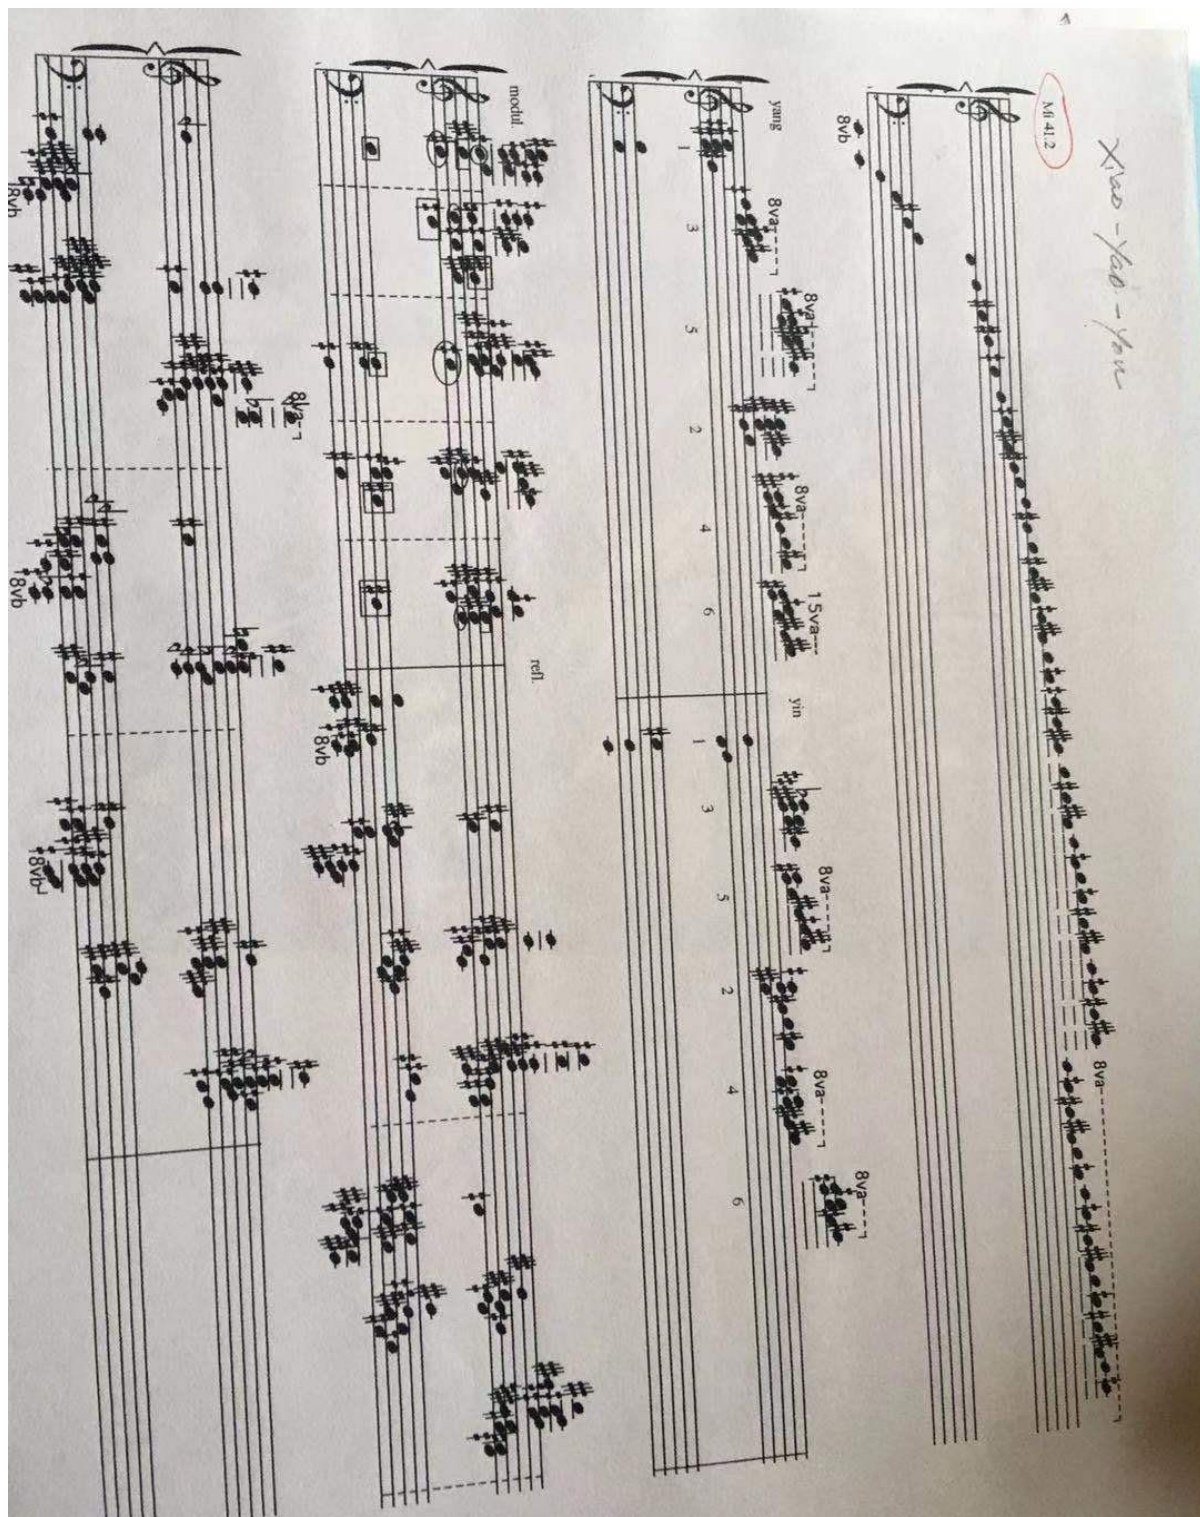 Xiao-Yao-You
Mi 41.2
8vb
8va
yang
8va
8va
8va
15va
yin
8va
8va
8va
1 3 5 2 4 6 1 3 5 2 4 6
modul.
refl.
8vb
8va
8vb
8vb
8vb